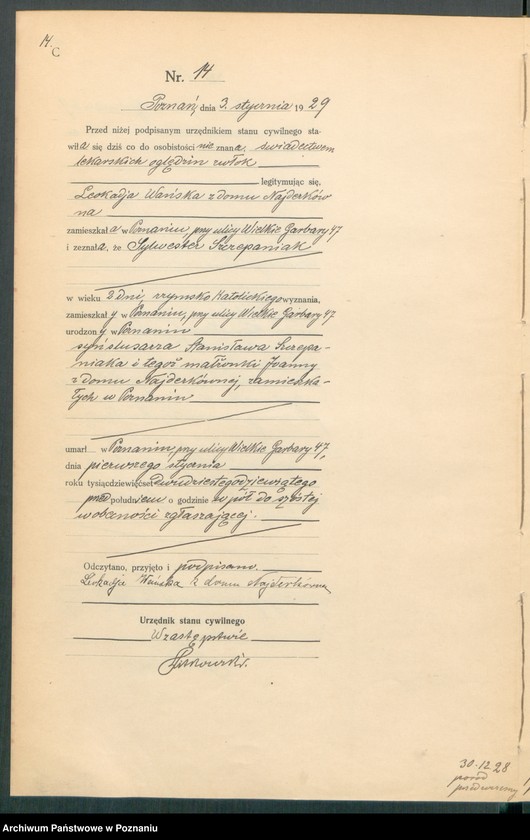 14.
C
Nr. 14
Poznań, dnia 3. stycznia 1929
Przed niżej podpisanym urzędnikiem stanu cywilnego sta-
wiła się dziś co do osobistości nie znana, świadectwem
lekarskich oględzin zwłok
legitymując się,
Leokadja Wańska z domu Najderków
na
zamieszkała w Poznaniu, przy ulicy Wielkie Garbary 47
i zeznała, że Sylwester Szczepaniak
w wieku 2 dni, rzymsko katolickiego wyznania,
zamieszkały w Poznaniu, przy ulicy Wielkie Garbary 47
urodzony w Poznaniu
syn ślusarza Stanisława Szczepa-
niaka i tegoż małżonki Joanny
z domu Najderkównej, zamieszka-
łych w Poznaniu
umarł w Poznaniu, przy ulicy Wielkie Garbary 47,
dnia pierwszego stycznia
roku tysiąc dziewięćset dwudziestego dziewiątego
przed południem o godzinie w pół do szóstej
w obecności zgłaszającej.
Odczytano, przyjęto i podpisano.
Leokadja Wańska z domu Najderkówna
Urzędnik stanu cywilnego
W zastępstwie
30.12.28
poród
przedwczesny
Archiwum Państwowe w Poznaniu